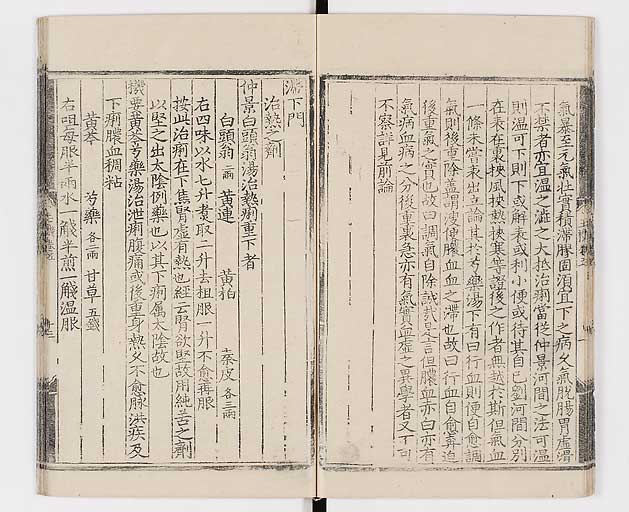 氣暴至元氣壯實積滯膠固須宜下之病久氣脫腸胃虛滑
不禁者亦宜溫之澁之大抵治痢當從仲景河間之法可溫
則溫可下則下或解表或利小便或待其自已劉河間分別
在表在裏挾風挾熱挾寒等證後之作者無越於斯但氣血
一條未嘗表出立論其於芍藥湯下有曰行血則便自愈調
氣則後重除蓋謂溲便膿血血之滯也故曰行血自愈裏迫
後重氣之實也故曰調氣自除誠哉是言但膿血赤白亦有
氣病血病之分後重裏急亦有氣實血虛之異學者又不可
不察詳見前論
滯下門
治熱之劑
仲景白頭翁湯治熱痢重下者
白頭翁二兩 黃連 黃柏 秦皮各三兩
右四味以水七升煑取二升去柤服一升不愈再服
按此治痢在下焦腎虛有熱也經云腎欲堅故用純苦之劑
以堅之出太陰例藥也以其下痢属太陰故也
機要黃芩芍藥湯治泄痢腹痛或後重身熱久不愈脉洪疾及
下痢膿血稠粘
黃芩 芍藥各二兩 甘草五錢
右咀每服半兩水一觥半煎一觥溫服